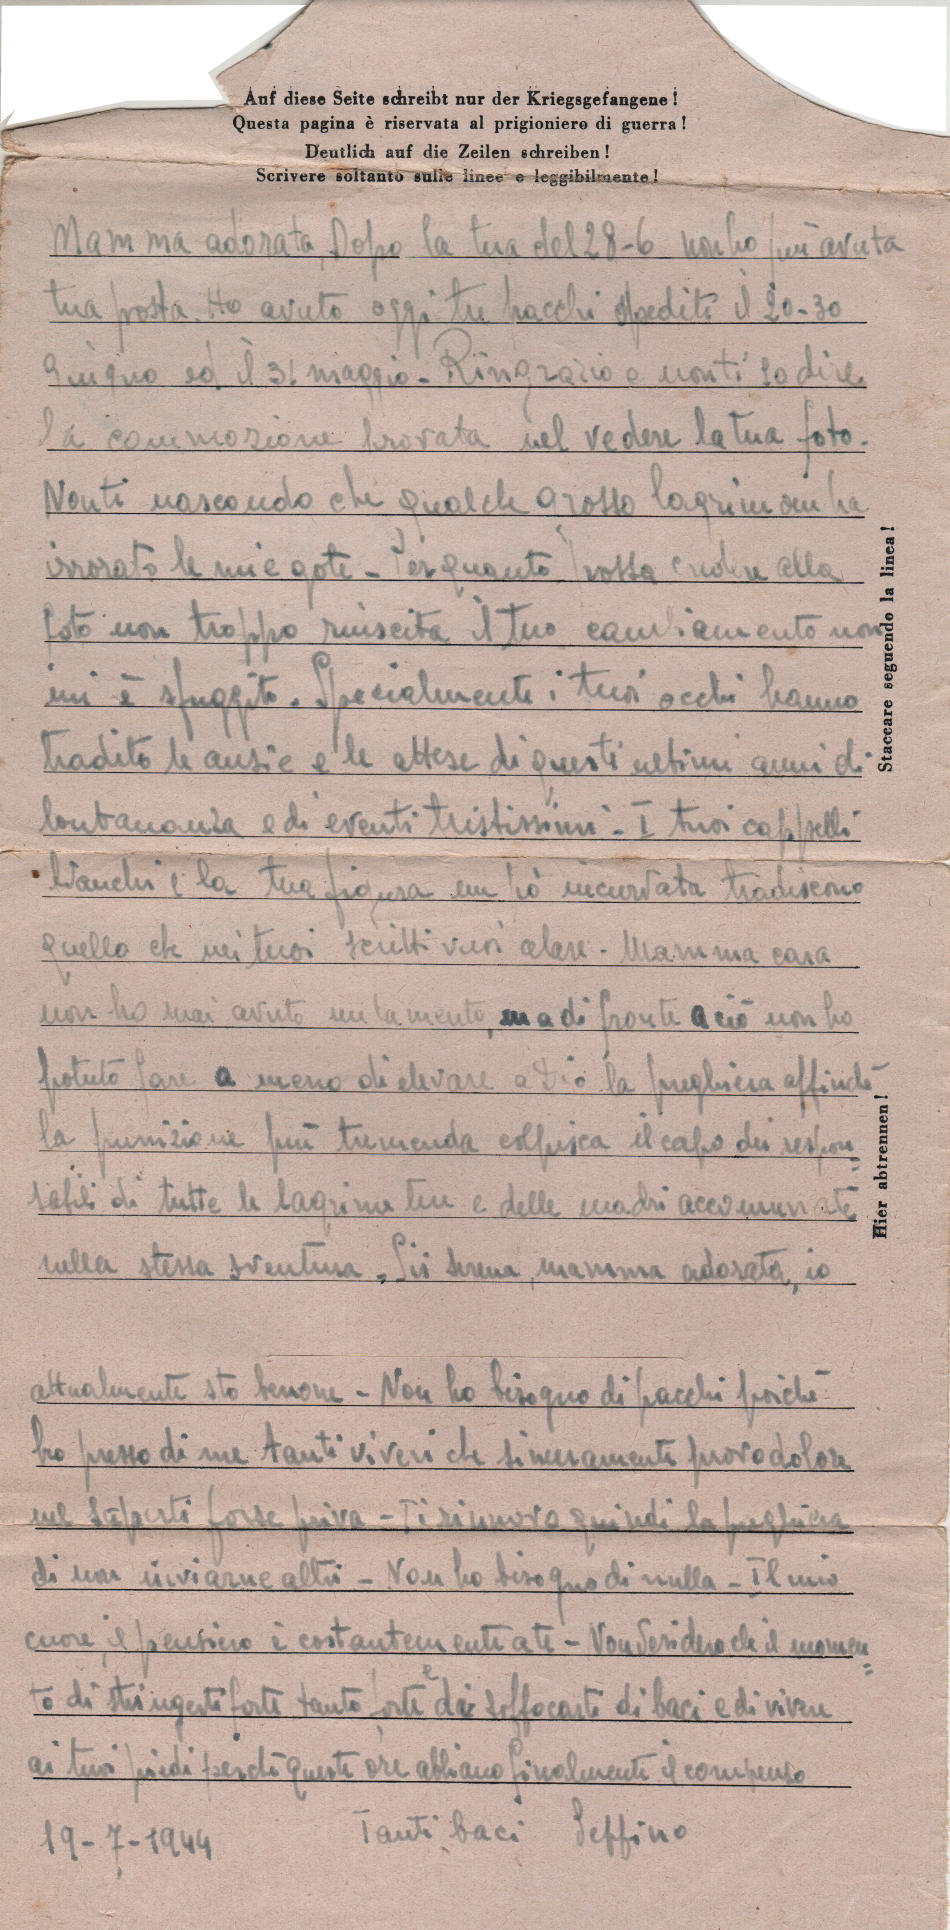 Auf diese Seite schreibt nur der Kriegsgefangene!
Questa pagina è riservata al prigioniero di guerra!
Deutlich auf die Zeilen schreiben!
Scrivere soltanto sulle linee e leggibilmente!
Mamma adorata, Dopo la tua del 28-6 non ho più avuta
tua posta. Ho avuto oggi tre pacchi spediti il 20-30
Giugno ed il 31 maggio - Ringrazio e non ti so dire
la commozione provata nel vedere la tua foto.
Non ti nascondo che qualche grosso lagrimone ha
irrorato le mie gote - Per quanto possa credere alla
foto non troppo riuscita il tuo cambiamento non
mi è sfuggito. Specialmente i tuoi occhi hanno
tradito le ansie e le attese di questi ultimi anni di
lontananza e di eventi tristissimi - I tuoi cappelli
bianchi e la tua figura un pò incurvata tradiscono
quello che nei tuoi scritti vuoi celare - Mamma cara
non ho mai avuto un lamento, ma di fronte a ciò non ho
potuto fare a meno di elevare a Dio la preghiera affinchè
la punizione più tremenda colpisca il capo dei respon=
sabili di tutte le lagrime tue e delle madri accomunate
nella stessa sventura. Sii serena, mamma adorata, io
attualmente sto benone - Non ho bisogno di pacchi poichè
ho presso di me tanti viveri che sinceramente provo dolore
nel saperti forse priva - Ti rinnovo quindi la preghiera
di non inviarne altri - Non ho bisogno di nulla - Il mio
cuore, il pensiero è costantemente a te - Non desidero che il momen=
to di stringerti forte tanto forte e di soffocarti di baci e di vivere
ai tuoi piedi perchè queste ore abbiano finalmente il compenso
19-7-1944 Tanti baci Peffino
Staccare seguendo la linea!
Hier abtrennen!